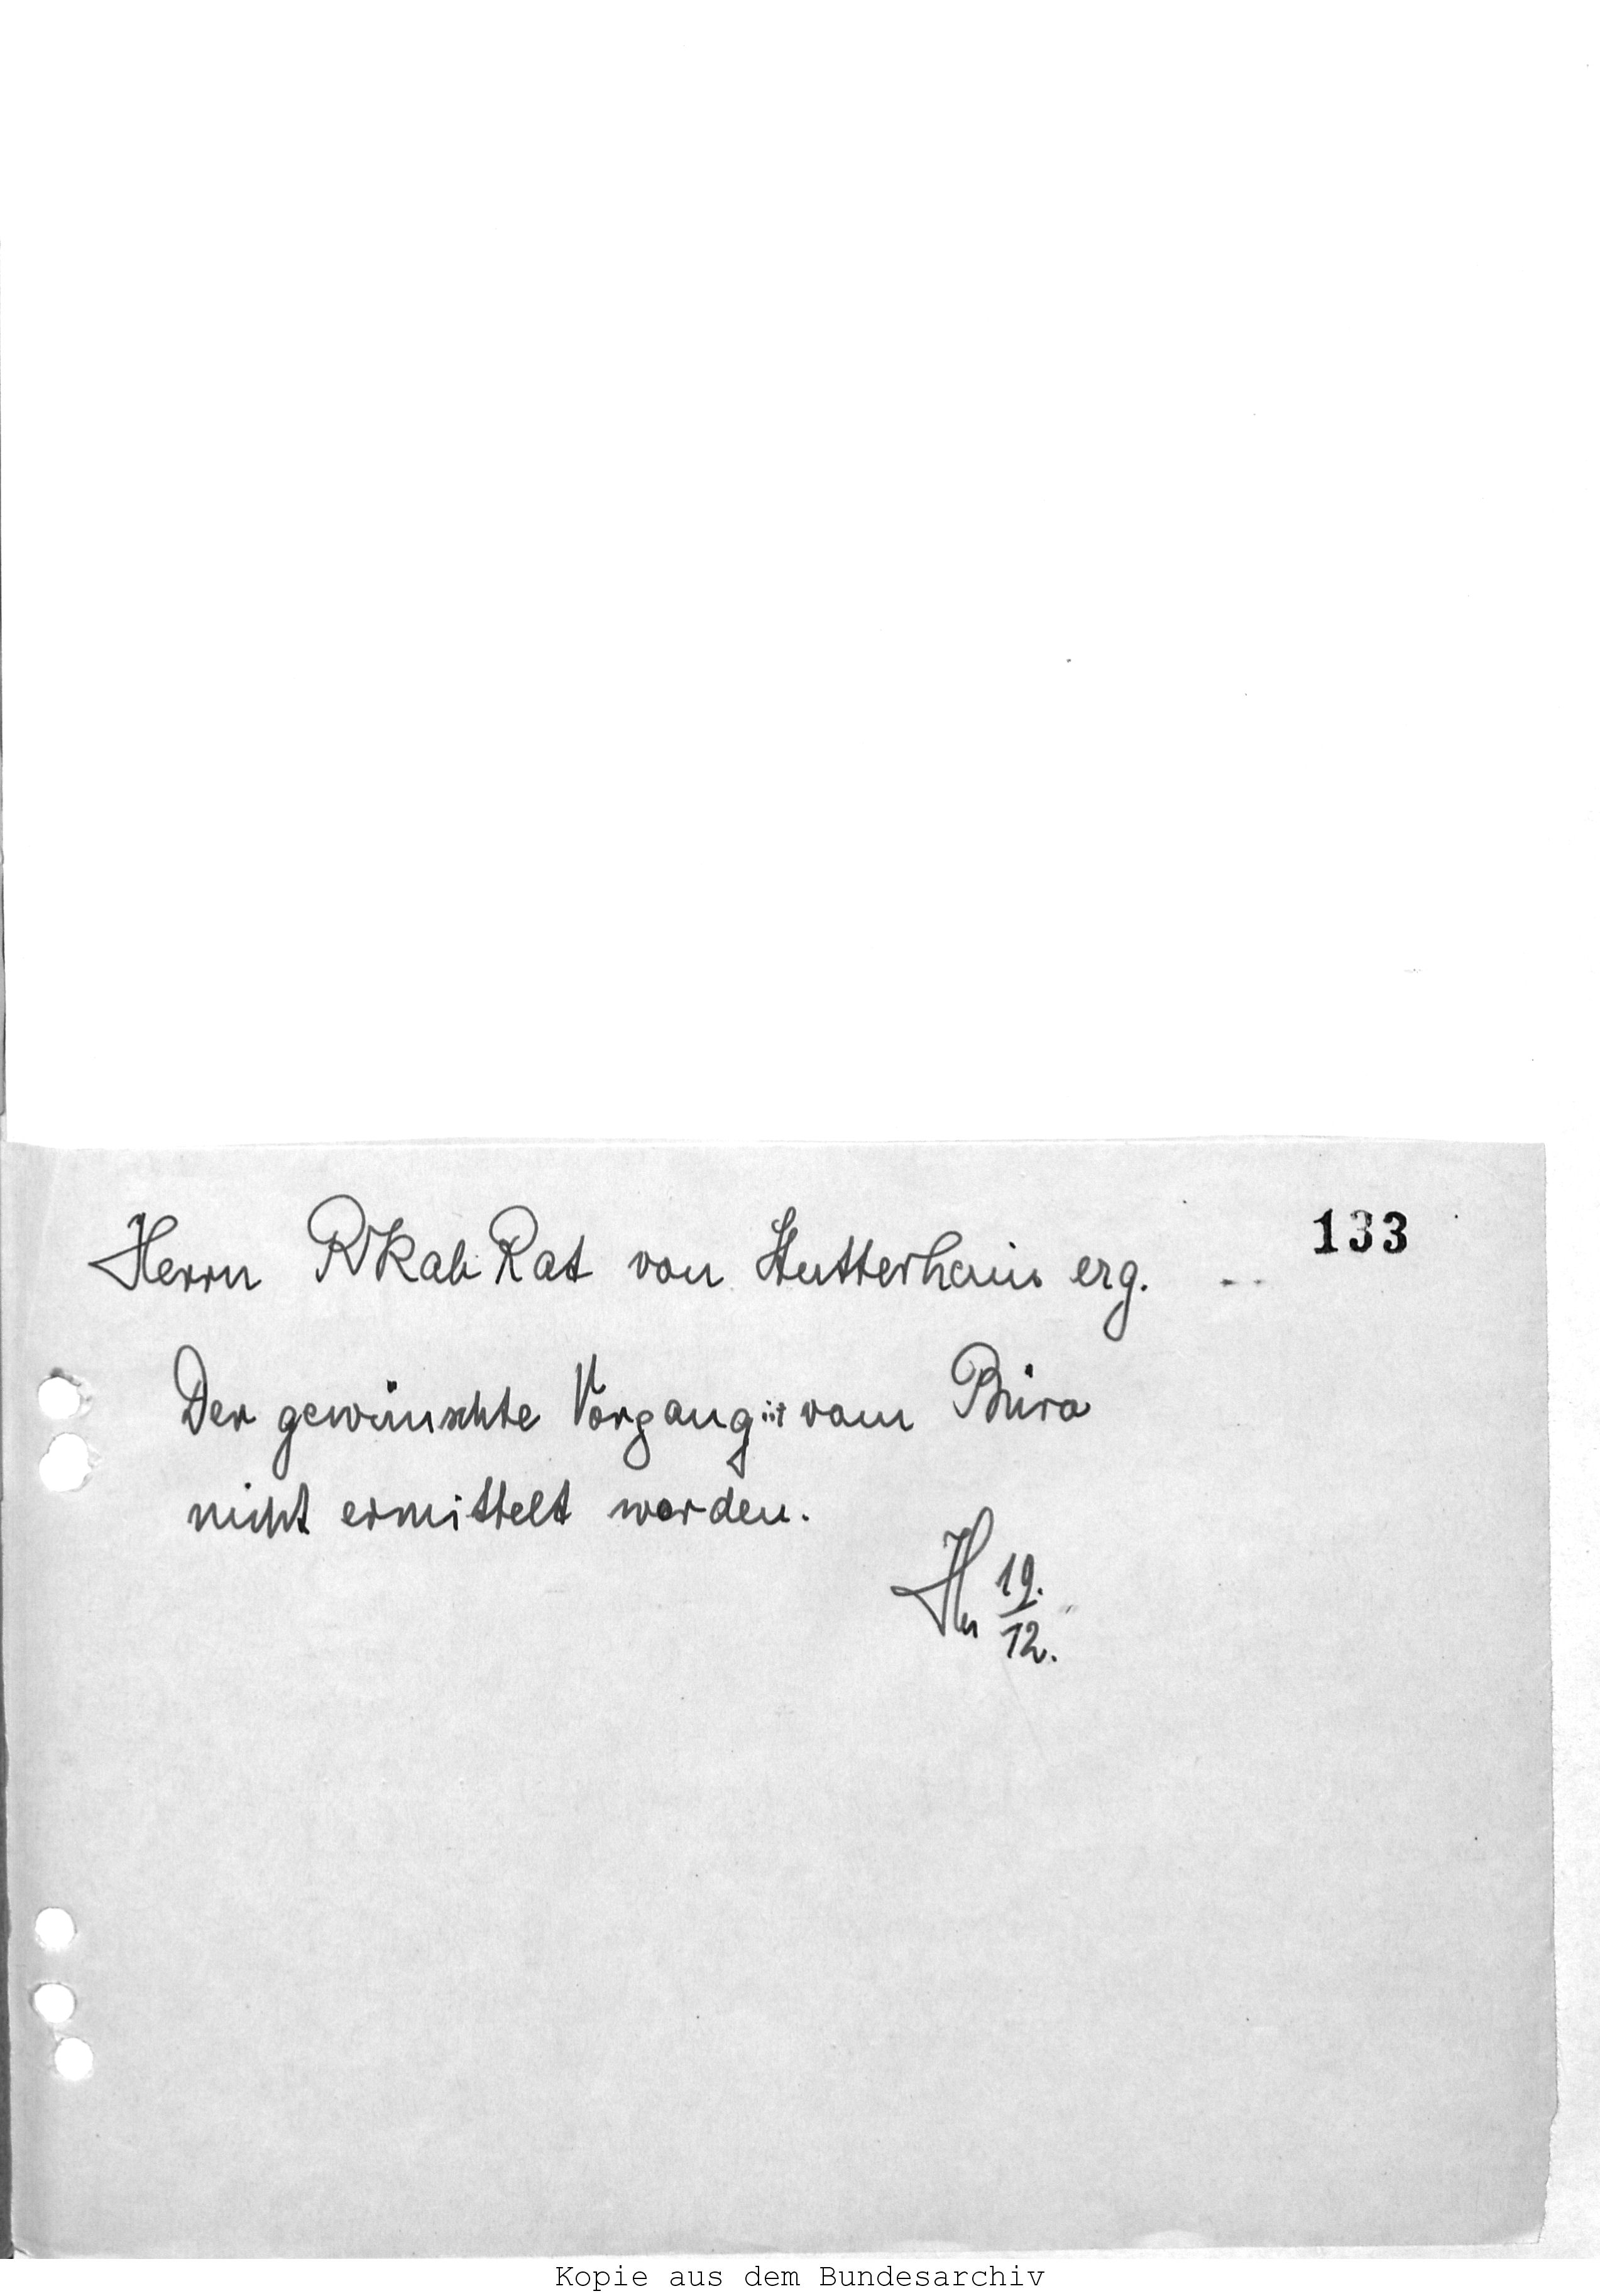 133
Herrn RKab Rat von Stutterheim erg.
Der gewünschte Vorgang ist vom Büro
nicht ermittelt worden.
19.
12.
Kopie aus dem Bundesarchiv